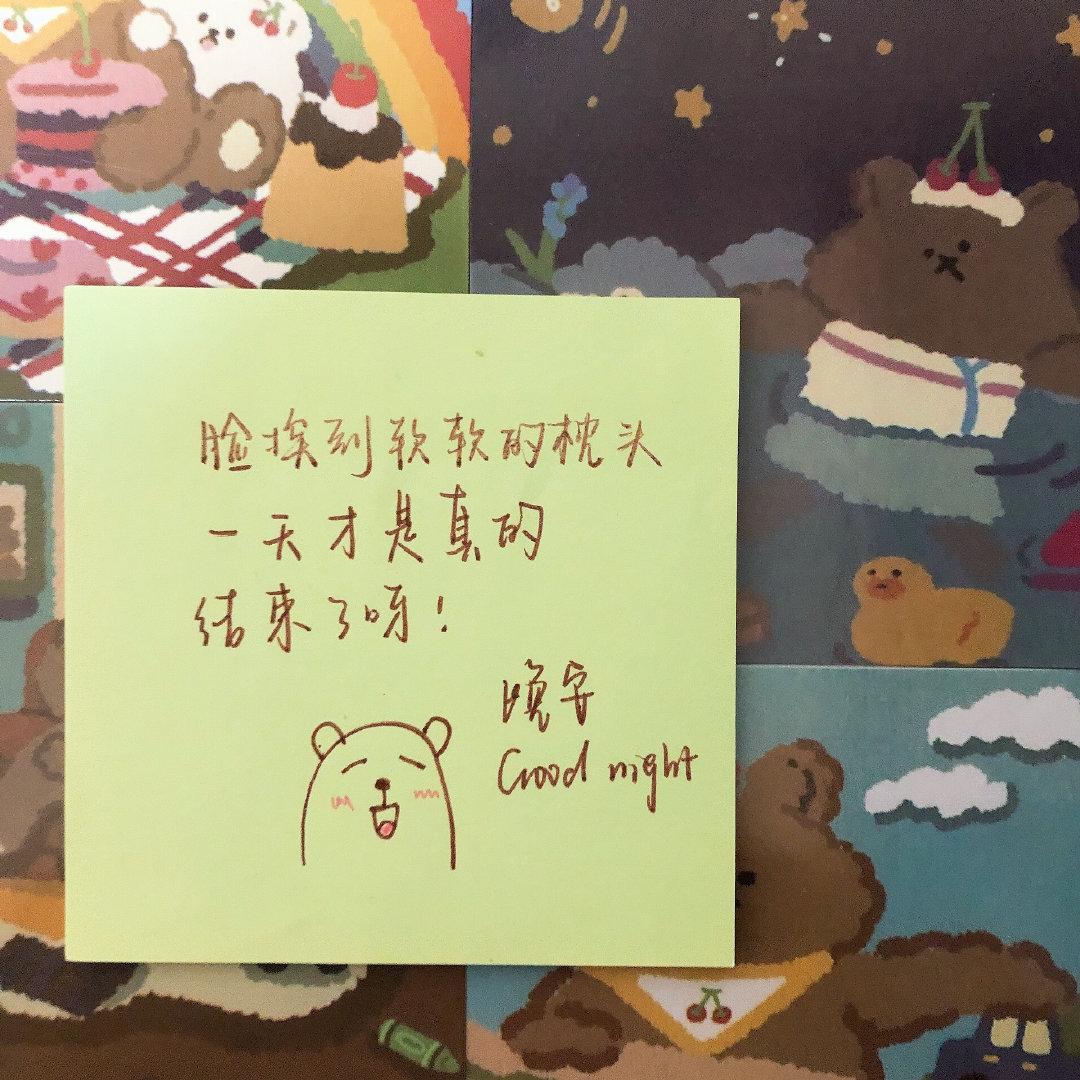 脸挨到软软的枕头
一天才是真的
结束了呀!
晚安
Good night